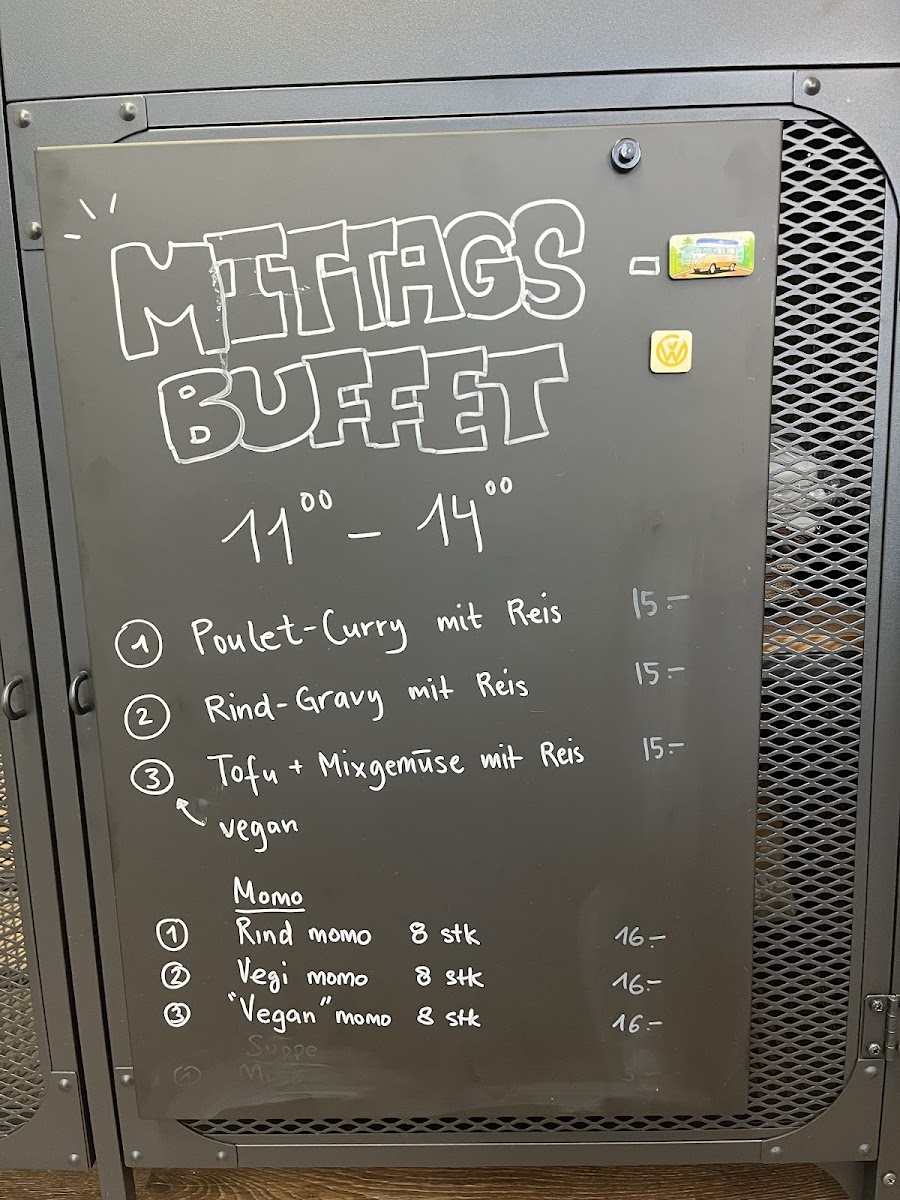 MITTAGS -
BUFFET
11⁰⁰ - 14⁰⁰
1 Poulet-Curry mit Reis 15.-
2 Rind-Gravy mit Reis 15.-
3 Tofu + Mixgemüse mit Reis 15.-
vegan
Momo
1 Rind momo 8 stk 16.-
2 Vegi momo 8 stk 16.-
3 "Vegan" momo 8 stk 16.-
Suppe